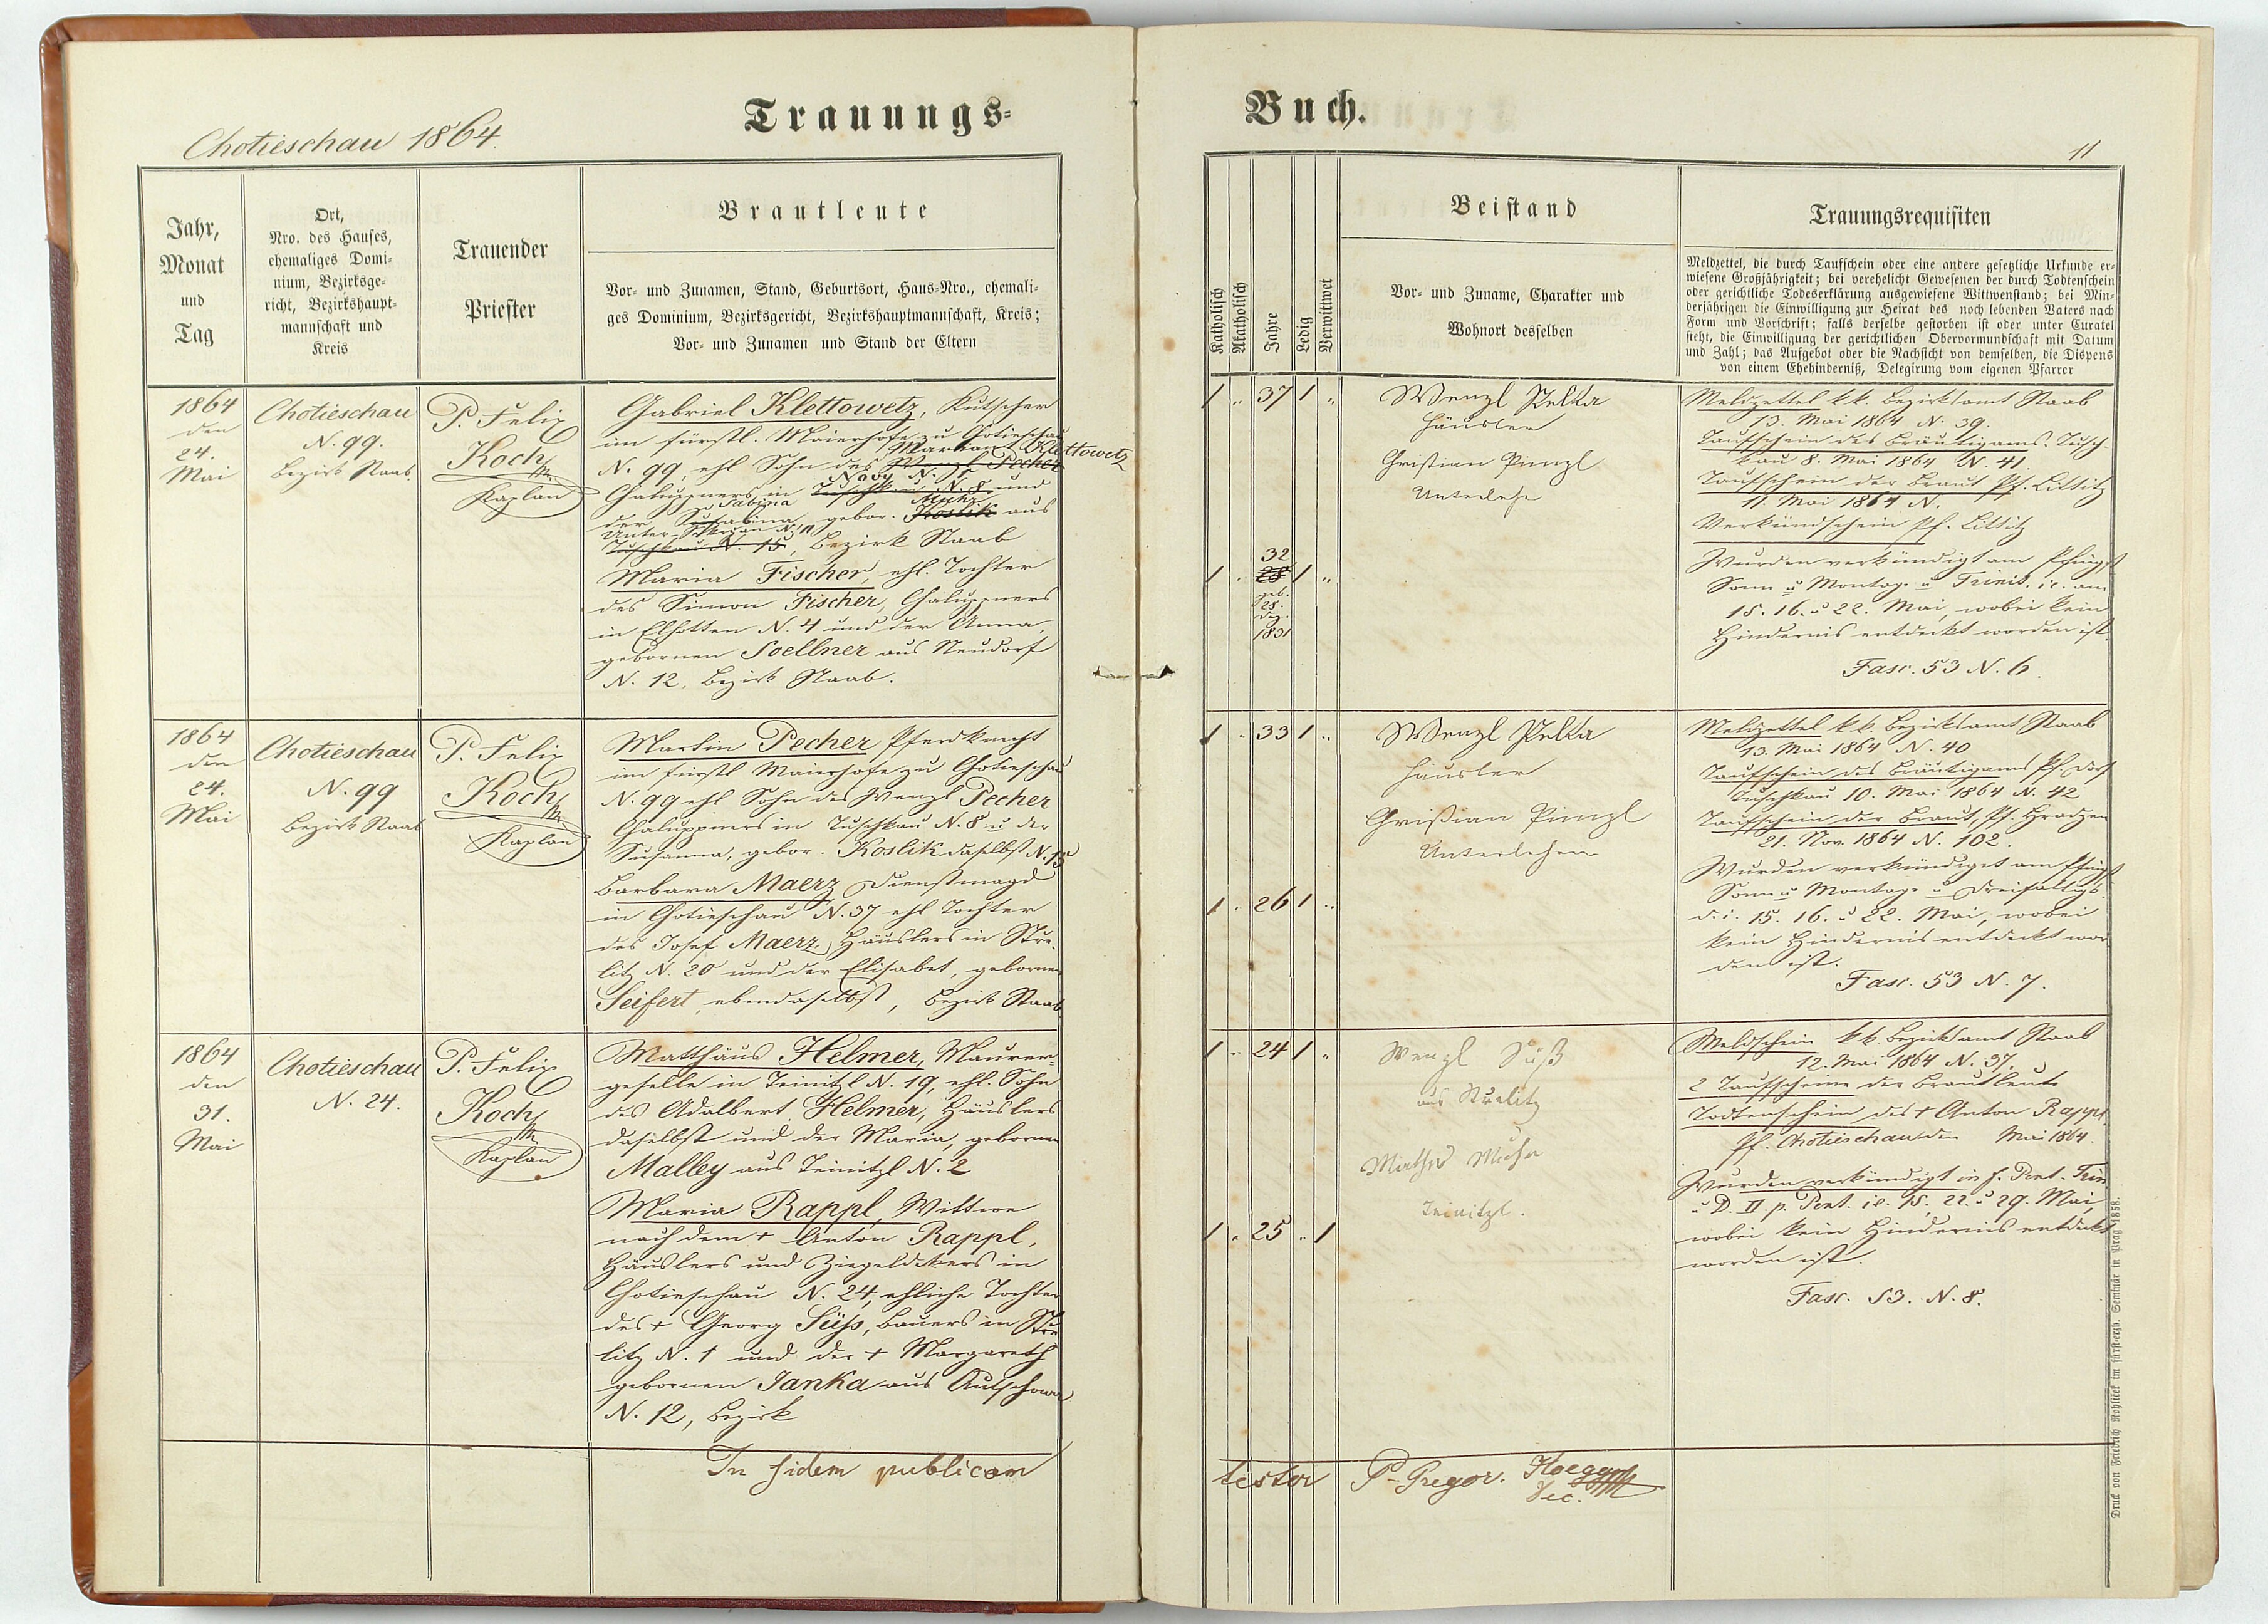 Chotieschau 1864.
Trauungs=
Jahr,
Monat
und
Tag
Ort,
Nro. des Hauses,
ehemaliges Domi=
nium, Bezirksge=
richt, Bezirkshaupt=
mannschaft und
Kreis
Trauender
Priester
Brautleute
Vor= und Zunamen, Stand, Geburtsort, Haus=Nro., ehemali=
ges Dominium, Bezirksgericht, Bezirkshauptmannschaft, Kreis;
Vor= und Zunamen und Stand der Eltern
1864
den
24.
Mai
Chotieschau
N. 99.
Bezirk Staab.
P. Felix
Koch
Kaplan
Gabriel Klettowetz, Kutscher
im fürstl. Maierhofe zu Chotieschau
Klettowetz
N. 99, ehl Sohn des Wenzl Pecher
Novy N.
Chaluppners in Tuschkau N. 8 und
Sabina
der Susabina, gebor. Koslik aus
Unter N. 11
Tuschkau N. 15, Bezirk Staab
Maria Fischer, ehl. Tochter
des Simon Fischer, Chaluppners
in Elhotten N. 4 und der Anna,
gebornen Soellner aus Neudorf
N. 12, Bezirk Staab.
1864
den
24.
Mai
Chotieschau
N. 99
Bezirk Staab
P. Felix
Koch
Kaplan
Martin Pecher, Pferdknecht
im fürstl Maierhofe zu Chotieschau
N. 99 ehl Sohn des Wenzl Pecher
Chaluppners in Tuschkau N. 8 u der
Susanna, gebor. Koslik daselbst N. 15
Barbara Maerz Dienstmagd
in Chotieschau N. 37 ehl Tochter
des Josef Maerz, Häuslers in Stre-
litz N. 20 und der Elisabet, gebornen
Seifert, ebendaselbst, Bezirk Staab
1864
den
31.
Mai
Chotieschau
N. 24.
P. Felix
Koch
Kaplan
Matthäus Helmer, Maurer=
geselle in Teinitzl N. 19, ehl. Sohn
des Adalbert Helmer, Häuslers
daselbst und der Maria, gebornen
Malley aus Teinitzl N. 2
Maria Rappl, Wittwe
nach dem + Anton Rappl,
Häuslers und Ziegeldekers in
Chotieschau N. 24, ehliche Tochter
des + Georg Süss, Bauers in Stre
litz N. 1 und der + Margareth
gebornen Janka aus Autschowa
N. 12, Bezirk
In fidem publicam
Buch.
11
Katholisch
Akatholisch
Jahre
Ledig
Verwittwet
Beistand
Vor= und Zuname, Charakter und
Wohnort desselben
Trauungsrequisiten
Meldzettel, die durch Taufschein oder eine andere gesetzliche Urkunde er=
wiesene Großjährigkeit; bei verehelicht Gewesenen der durch Todtenschein
oder gerichtliche Todeserklärung ausgewiesene Wittwenstand; bei Min=
derjährigen die Einwilligung zur Heirat des noch lebenden Vaters nach
Form und Vorschrift; falls derselbe gestorben ist oder unter Curatel
steht, die Einwilligung der gerichtlichen Obervormundschaft mit Datum
und Zahl; das Aufgebot oder die Nachsicht von demselben, die Dispens
von einem Ehehinderniß, Delegirung vom eigenen Pfarrer
1 " 37 1 "
Wenzl Pelka
Häusler
Christian Pimzl
32
1 " 28 1 "
geb.
28.
Dez.
1831
Meldzettel kk. Bezirksamt Staab
13. Mai 1864 N. 39.
Taufschein des Bräutigams. Tusch-
kau 8. Mai 1864 N. 41.
Taufschein der Braut Pf. Littitz
11. Mai 1864 N.
Verkündschein Pf. Littitz
Wurden verkündigt am Pfingst
Sonn u Montag u Trinit. i.e. am
15. 16. u 22. Mai, wobei kein
Hindernis entdekt worden ist.
Fasc. 53 N. 6
1 " 33 1 "
Wenzl Pelka
Häusler
Christian Pimzl
1 " 26 1 "
Meldzettel kk. Bezirksamt Staab
13. Mai 1864 N. 40
Taufschein des Bräutigams Pf. Dorf
Tuschkau 10. Mai 1864 N. 42
Taufschein der Braut, Pf. Hradzen
21. Nov. 1864 N. 102.
Wurden verkündiget am Pfingst
Sonn u Montag u Dreifaltigs
d. i. 15. 16. u 22. Mai, wobei
kein Hindernis entdekt wor
den ist.
Fasc. 53 N. 7.
1 " 24 1 "
Wenzl Süß
aus Strelitz
Teinitzl.
1 " 25 " 1
Meldschein kk. Bezirksamt Staab
12. Mai 1864 N. 37.
2 Taufscheine der Brautleute
Todtenschein des + Anton Rappl,
Pf. Chotieschau den Mai 1864.
Wurden verkündigt in f. Pent. Trin.
u D. II p. Pent. i.e. 15. 22. u 29. Mai,
wobei kein Hindernis entdekt
worden ist.
Fasc. 53. N. 8.
testor P. Gregor.
Dec.
Druck von Friedrich Rohliček im fürst=erzb. Seminär in Prag 1858.